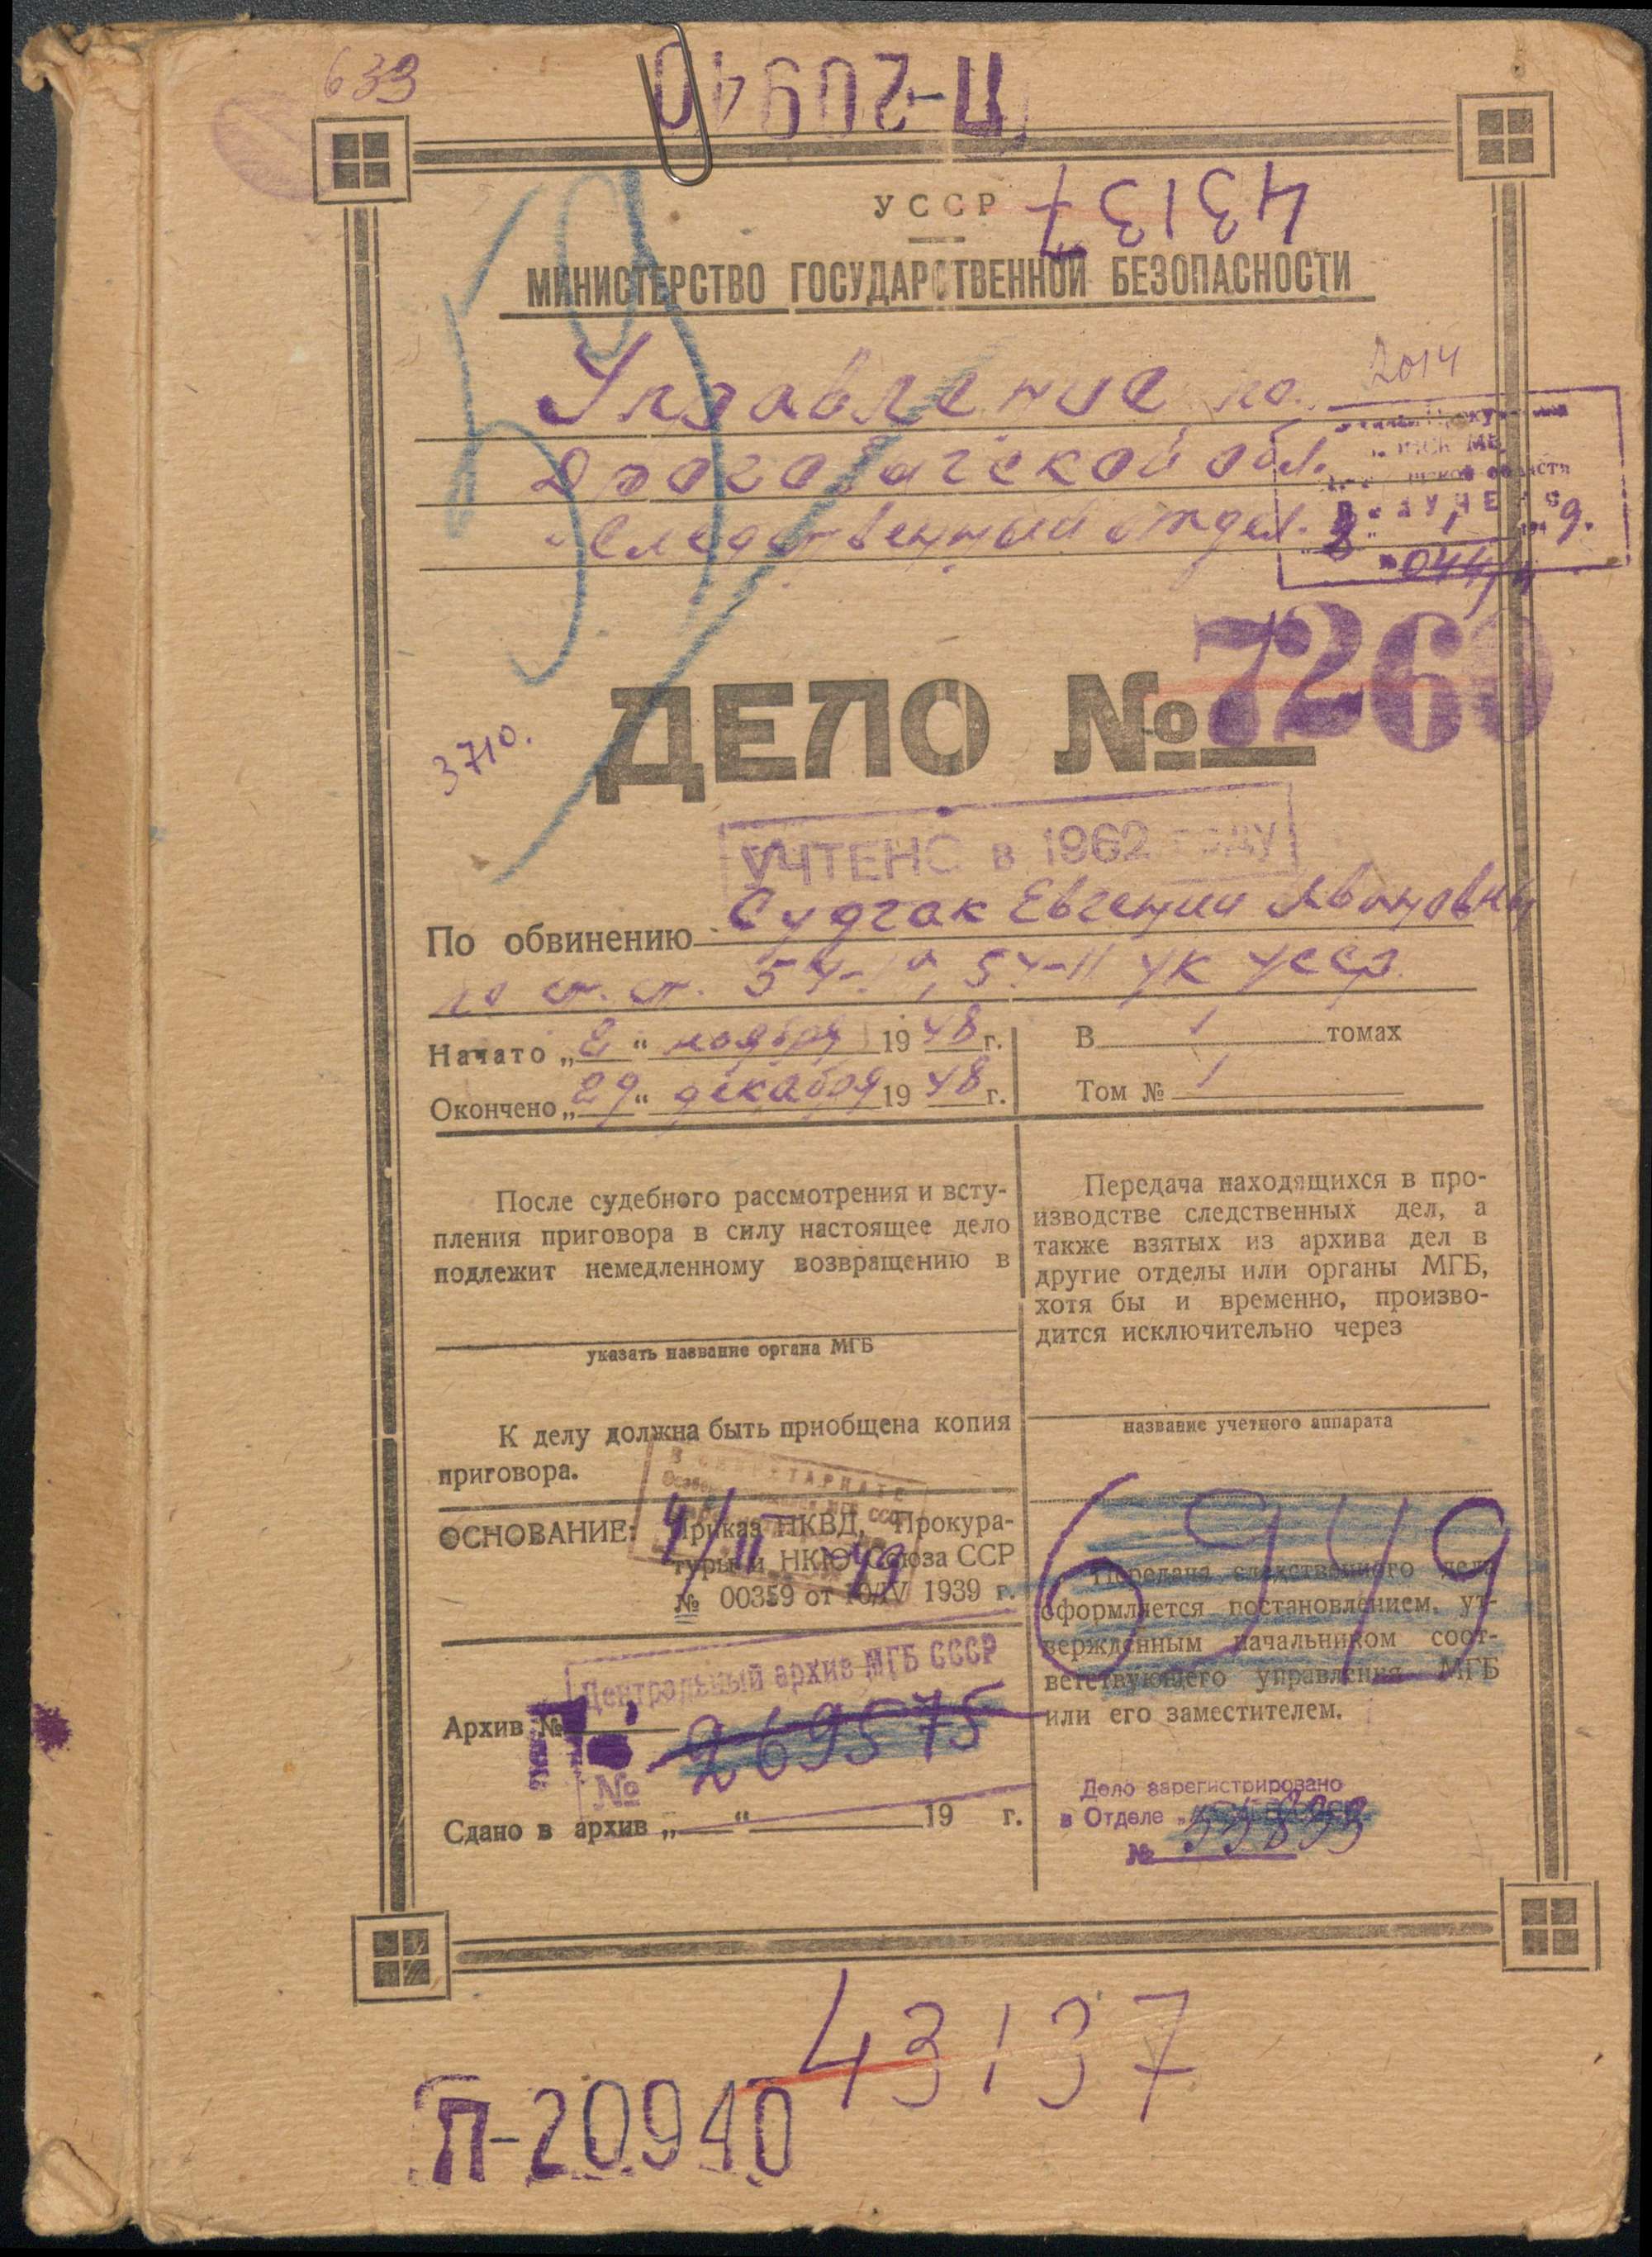 639
П-20940
УССР
43137
МИНИСТЕРСТВО ГОСУДАРСТВЕННОЙ БЕЗОПАСНОСТИ
2014
Управление по
Дрогобычской обл.
Следственный отдел.
044/
ДЕЛО № 726
3710.
УЧТЕНО в 1962 году
По обвинению Судчак Евгении Ивановны
по ст. ст. 54-1а, 54-11 УК УССР
Начато „2“ ноября 1948 г.
Окончено „29“ декабря 1948 г.
В 1 томах
Том № 1
После судебного рассмотрения и всту-
пления приговора в силу настоящее дело
подлежит немедленному возвращению в
указать название органа МГБ
К делу должна быть приобщена копия
приговора.
ОСНОВАНИЕ: Приказ НКВД, Прокура-
туры и НКЮ Союза ССР
№ 00359 от 10/IV 1939 г.
Центральный архив МГБ СССР
Архив №
№ 269575
Сдано в архив „ “ 19 г.
Передача находящихся в про-
изводстве следственных дел, а
также взятых из архива дел в
другие отделы или органы МГБ,
хотя бы и временно, произво-
дится исключительно через
название учетного аппарата
6949
Передача следственного дела
оформляется постановлением, ут-
вержденным начальником соот-
ветствующего управления МГБ
или его заместителем.
Дело зарегистрировано
в Отделе
№
43137
П-20940